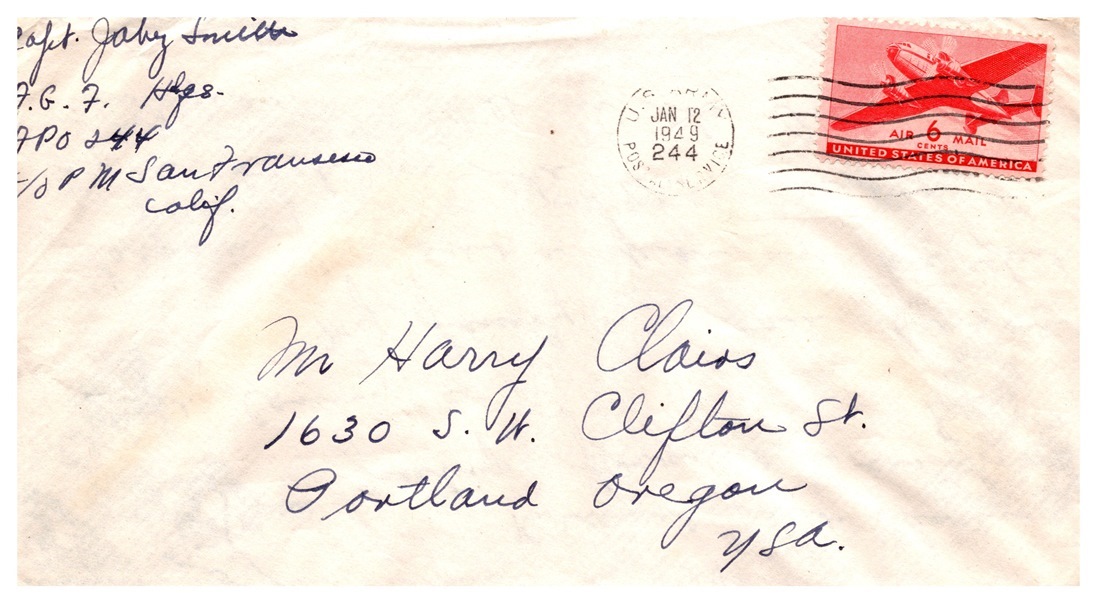 Capt. Jabez Smith
F.G.F. Hqs.
APO 244
c/o P M San Fransisco
Calif.
U.S. ARMY
JAN 12
1949
244
POSTAL SERVICE
AIR 6 MAIL
CENTS
UNITED STATES OF AMERICA
Mr Harry Claios
1630 S. W. Clifton St.
Portland Oregon
USA.